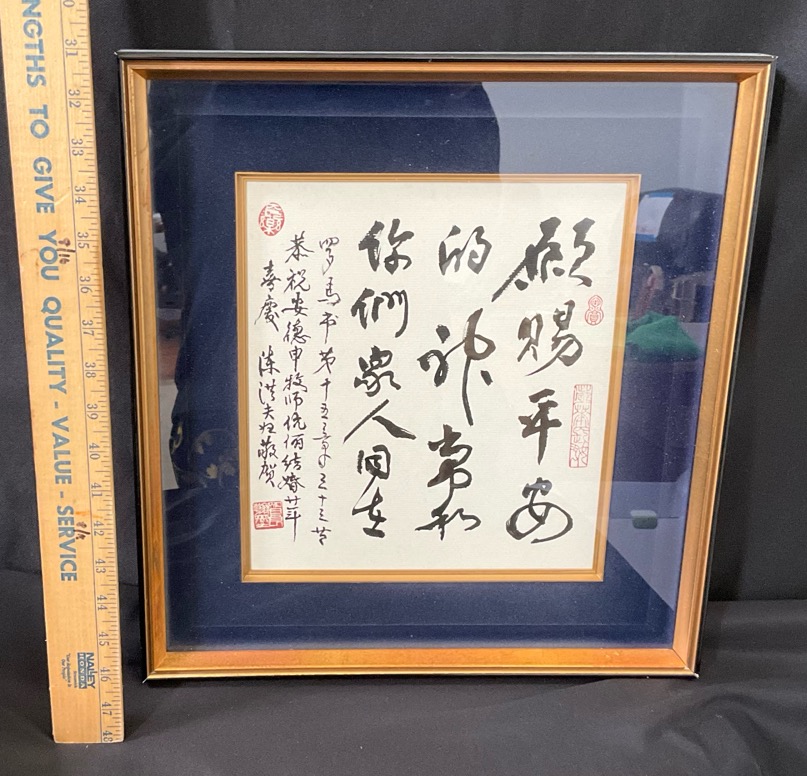 願賜平安
的神常和
你們眾人同在
罗馬书第十五章三十三节
恭祝安德申牧师伉俪结婚廿年
喜慶 陈洪夫妇敬贺
NGTHS TO GIVE YOU QUALITY - VALUE - SERVICE
31
32
33
34
35
36
37
38
39
40
41
42
43
44
45
46
47
48
NALLEY
HONDA